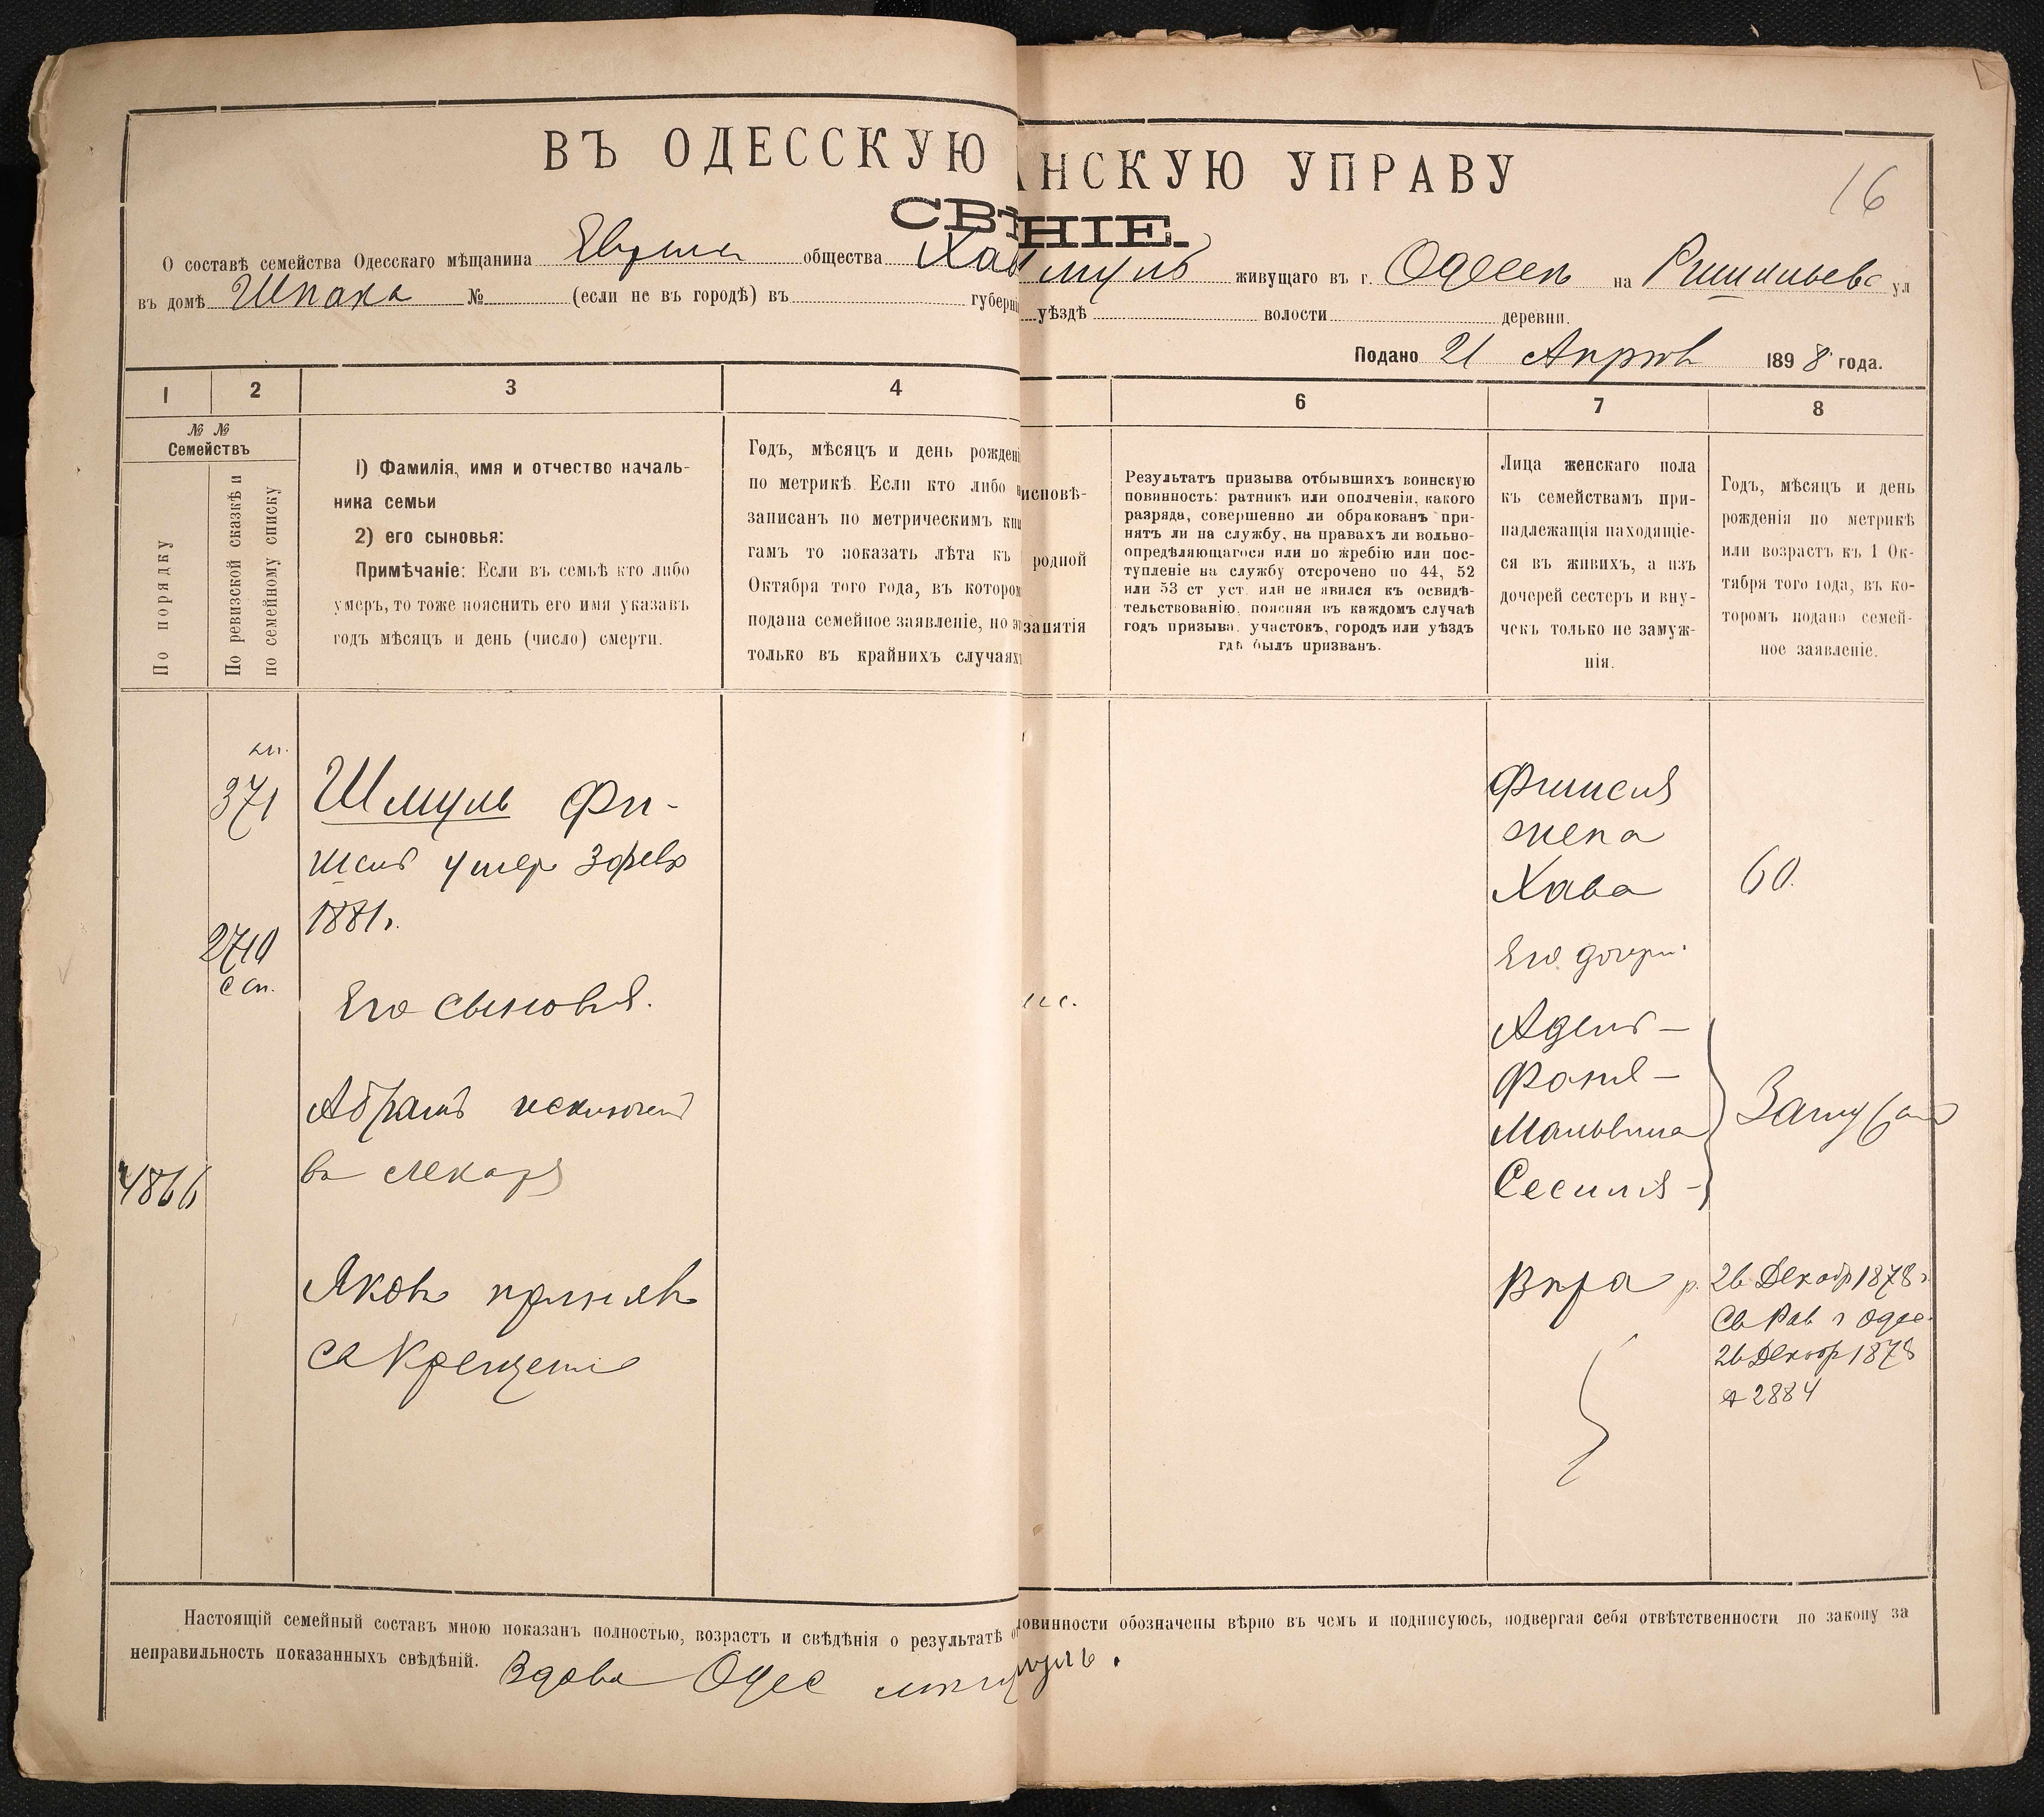 ВЪ ОДЕССКУЮ
НСКУЮ УПРАВУ
16
СВѢ
НІЕ.
О составѣ семейства Одесскаго мѣщанина общества Хав
мулъ живущаго въ г. Одессѣ на Ришельевс ул
въ домѣ Шпака № (если не въ городѣ) въ губерні
уѣздѣ волости деревни.
Подано 21 Апрѣл 1898 года.
1
2
3
4
6
7
8
№ №
Семействъ
По порядку
По ревизской сказкѣ и
по семейному списку
1) Фамилія, имя и отчество началь-
ника семьи
2) его сыновья:
Примѣчаніе: Если въ семьѣ кто либо
умеръ, то тоже пояснить его имя указавъ
годъ мѣсяцъ и день (число) смерти.
Годъ, мѣсяцъ и день рождені
по метрикѣ. Если кто либо н
записанъ по метрическимъ кни
гамъ то показать лѣта къ
Октября того года, въ котором
подана семейное заявленіе, но эт
только въ крайнихъ случаях
исповѣ-
родной
занятія
Результатъ призыва отбывшихъ воинскую
повинность: ратникъ или ополченія, какого
разряда, совершенно ли обракованъ при-
нятъ ли на службу, на правахъ ли вольно-
опредѣляющагося или по жребію или пос-
тупленіе на службу отсрочено по 44, 52
или 53 ст уст. или не явился къ освидѣ-
тельствованію, поясняя въ каждомъ случаѣ
годъ призыва, участокъ, городъ или уѣздъ
гдѣ былъ призванъ.
Лица женскаго пола
къ семействамъ при-
надлежащія находящіе-
ся въ живихъ, а изъ
дочерей сестеръ и вну-
чекъ только не замуж-
нія.
Годъ, мѣсяцъ и день
рожденія по метрикѣ
или возрастъ къ 1 Ок-
тября того года, въ ко-
торомъ подано семей-
ное заявленіе.
сп.
371
Шмуль Фи-
шель умер 3 февр
1881г.
2710
с сп.
Его сыновья.
Абрамъ исключенъ
въ лекаря
4866
Яковъ принялъ
св Крещеніе
жена
Хава
60.
Его дочери
Адель —
Фаня —
Мальвина
Сесилія —
Замужем
Вѣра р. 26 Декабр 1878 г
Св Рав г Одес
26 Декабр 1878
№ 2884
Настоящій семейный составъ мною показанъ полностью, возрастъ и свѣдѣнія о результатѣ о
овинности обозначены вѣрно въ чемъ и подписуюсь, подвергая себя отвѣтственности по закону за
неправильность показанныхъ свѣдѣній.
Вдова Одес мѣщ